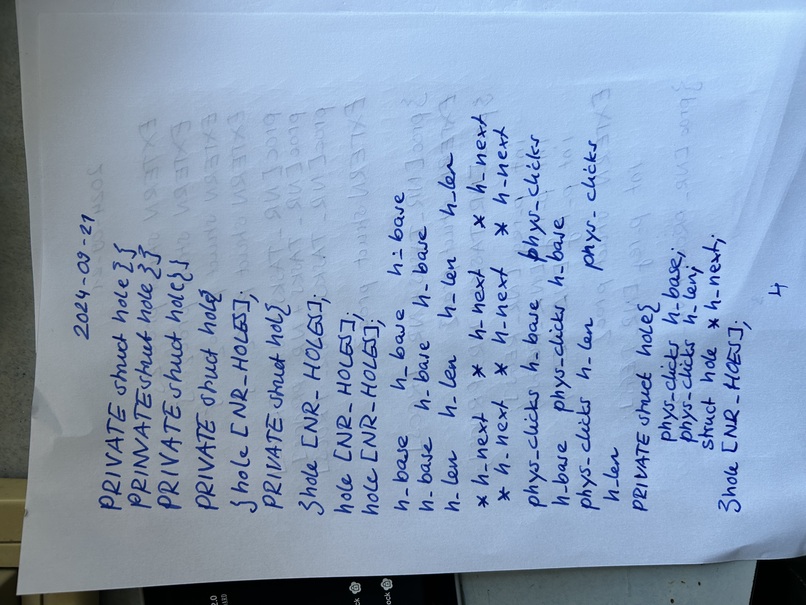 2024-09-21
PRIVATE struct hole{}
PRINVATE struct hole{}
PRIVATE struct hole{}
PRIVATE struct hole{
}hole [NR_HOLES];
PRIVATE struct hol{
}hole [NR_HOLES];
hole [NR_HOLES];
hole [NR_HOLES];
h_base h_base h_base
h_base h_base h_base
h_len h_len h_len h_len
* h_next * h_next * h_next
* h_next * h_next * h_next
phys_clicks h_base phys_clicks
h_base phys_clicks h_base
phys_clicks h_len phys_clicks
h_len
PRIVATE struct hole{
phys_clicks h_base;
phys_clicks h_len;
struct hole * h_next;
}hole [NR_HOES];
4